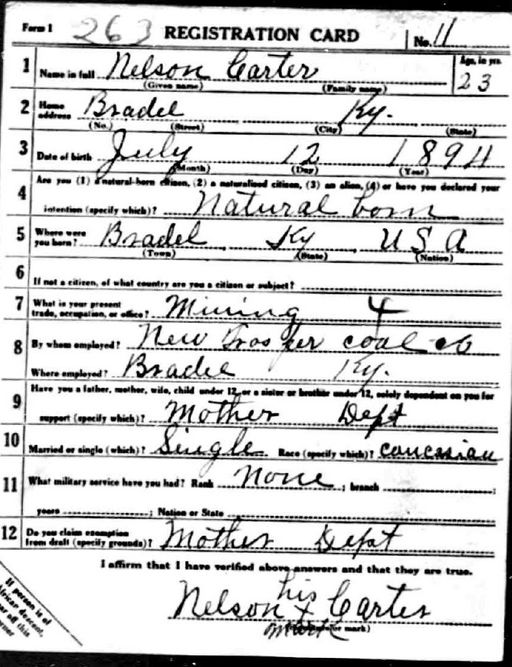 Form 1 263 REGISTRATION CARD No. 11
1 Name in full Nelson Carter Age, in yrs. 23
(Given name) (Family name)
2 Home address Bradel Ky.
(No.) (Street) (City) (State)
3 Date of birth July 12 1894
(Month) (Day) (Year)
Are you (1) a natural-born citizen, (2) a naturalized citizen, (3) an alien, (4) or have you declared your
4 intention (specify which)? Natural born
5 Where were you born? Bradel Ky USA
(Town) (State) (Nation)
6 If not a citizen, of what country are you a citizen or subject?
7 What is your present trade, occupation, or office? Mining 4
8 By whom employed? New Trosper coal co
Where employed? Bradel Ky.
Have you a father, mother, wife, child under 12, or a sister or brother under 12, solely dependent on you for
9 support (specify which)? Mother Dept
10 Married or single (which)? Single Race (specify which)? caucasian
11 What military service have you had? Rank None ; branch ;
years ; Nation or State
12 Do you claim exemption from draft (specify grounds)? Mother Dept
I affirm that I have verified above answers and that they are true.
his
Nelson x Carter
mark
or mark)
If person is of
African descent,
off this
corner